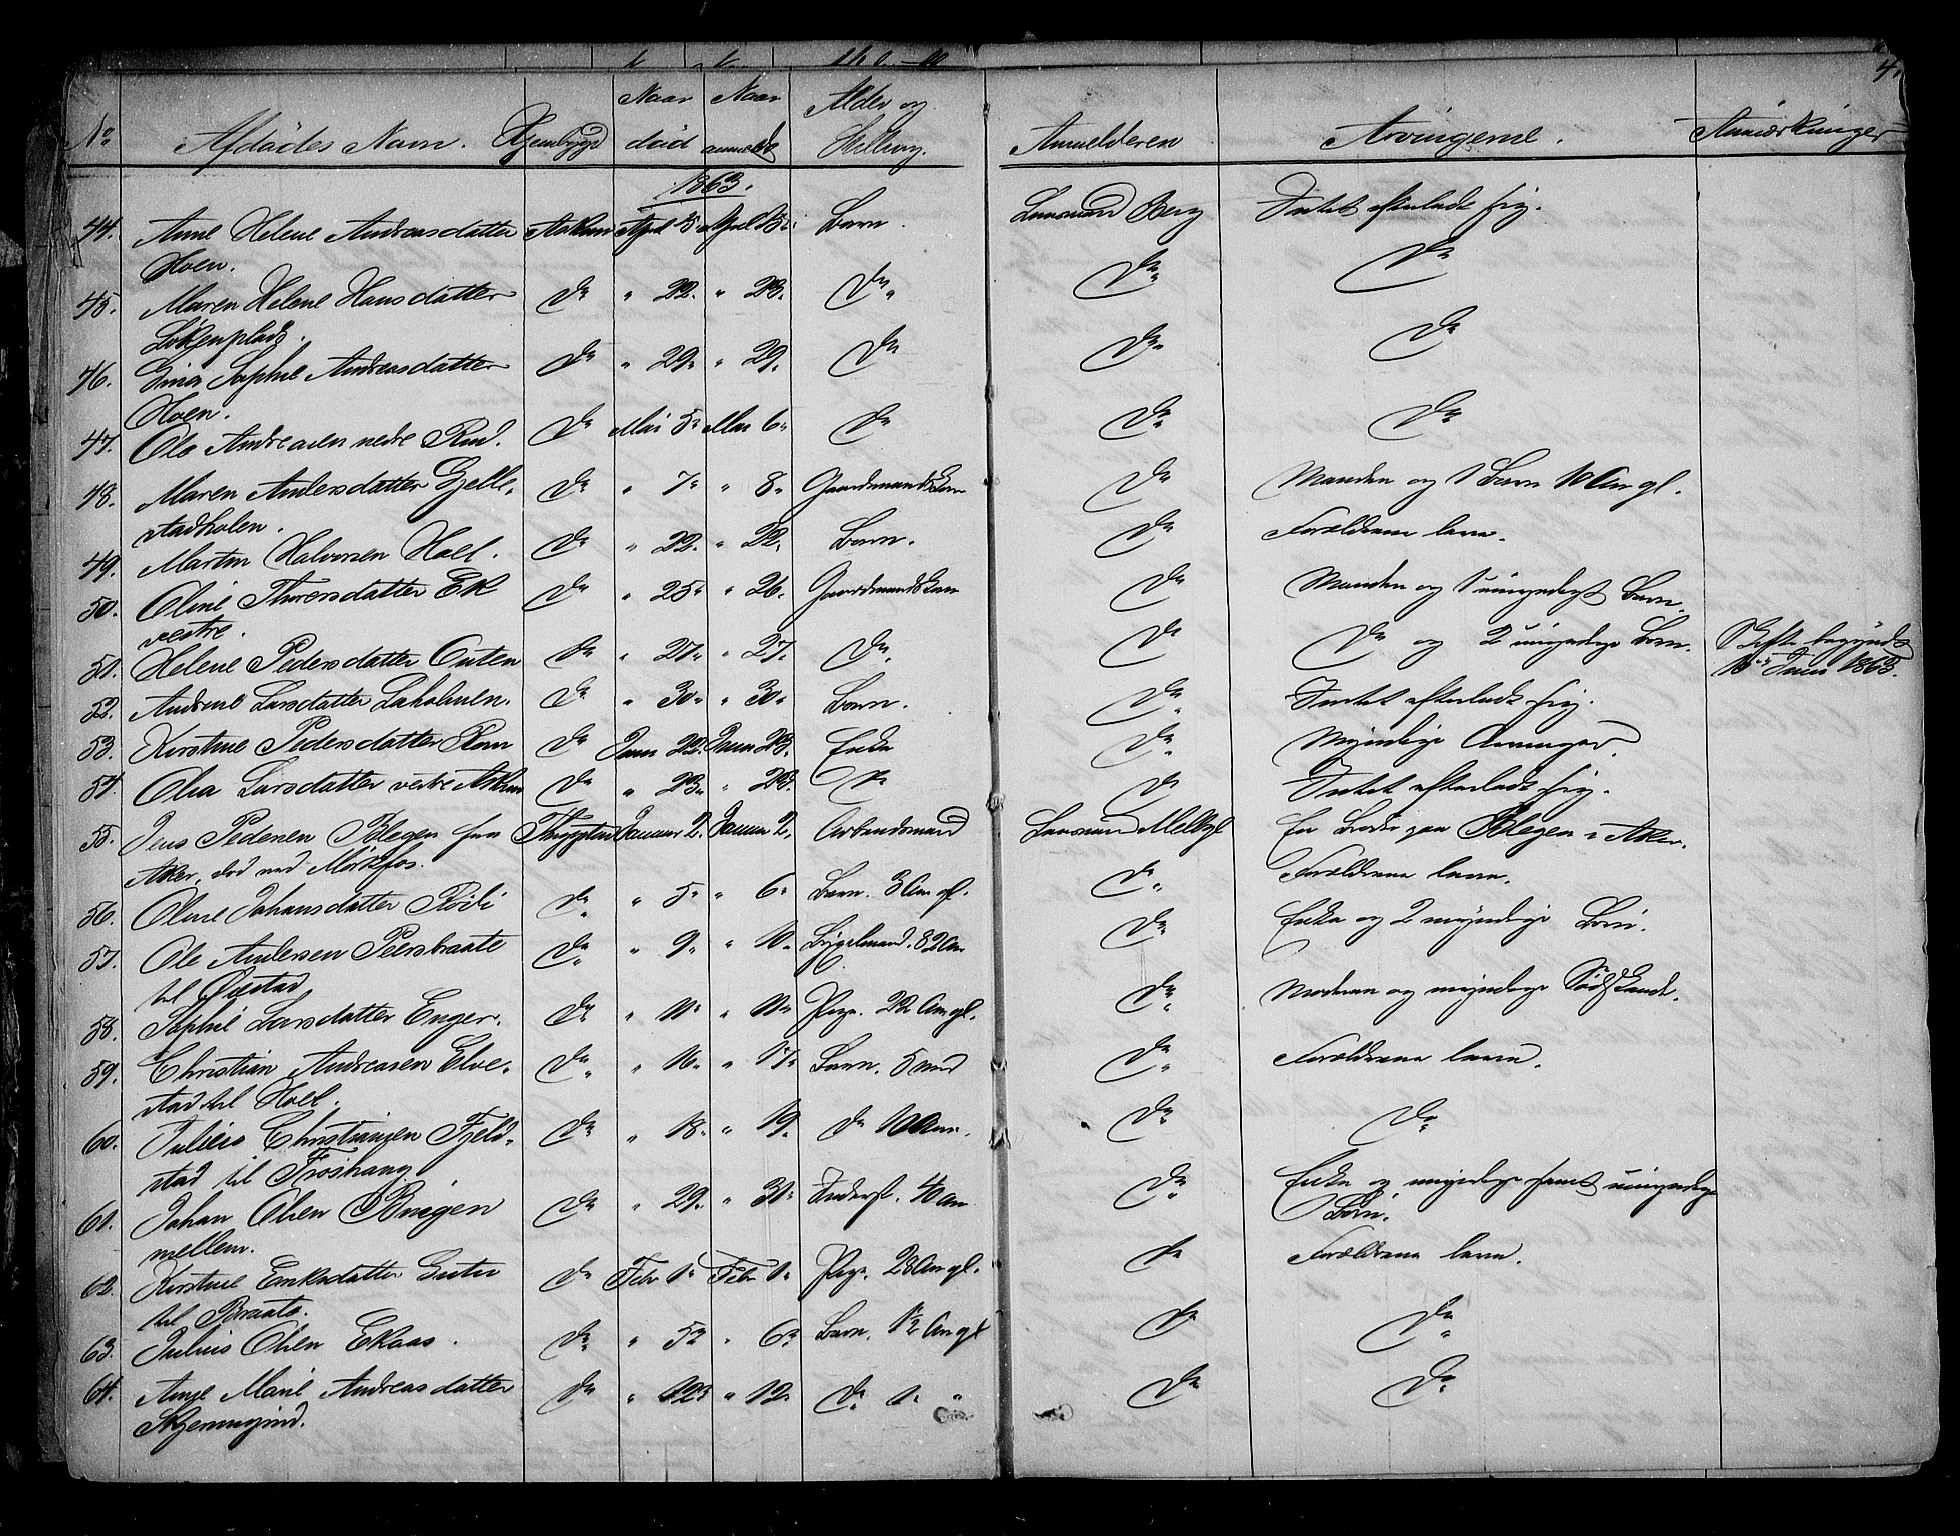 4.
No Afdödes Navn. Hjembygd Naar död Naar anmeldt Alder og Stilling. Anmelderen Arvingerne. Anmærkninger
1863.
44. Anne Helene Andreasdatter Askim April 15. April 15. Barn. Lensmand Berg Intet efterladt sig.
Hoen.
45. Maren Helene Hansdatter do " 22. " 23. do do do
Lökenplads.
46. Sophie Andreasdatter do " 29. " 29. do do do
Hoen.
47. Ole Andreasen nedre Rud. do Mai 5. Mai 6. do do do
48. Maren Andersdatter Gjelle- do " 7. " 8. Gaardmandskone do Manden og 1 Barn 10 Aar gl.
stadholen.
49. Martin Halvorsen Hoel. do " 22. " 22. Barn. do Forældrene leve.
50. Oline Thoresdatter Ek do " 25. " 26. Gaardmandskone do Manden og 1 umyndigt Barn.
vestre.
51. Helene Pedersdatter Outen do " 27. " 27. do. do do og 2 umyndige Børn. Skifte begyndt
10de Juni 1863.
52. Andrine Larsdatter do " 30. " 30. Barn. do Intet efterladt sig.
53. Kirstine Pedersdatter Rom do Juni 22. Juni 23. Enke do Myndige Arvinger.
54. Olia Larsdatter vestre Askim do " 23. " 23. do do Intet efterladt sig.
55. Jens Pedersen Blegen fra Thrygstad Januar 2. Januar 2. Arbeidsmand Lensmand Melleby En Broder paa Blegen i Aker.
Aker, död ved Mörkfos.
56. Oline Johansdatter do " 5. " 6. Barn. 3 Aar gl. do Forældrene leve.
57. Ole Andersen Peersbraate do " 9. " 10. Bygselmand. 82 Aar do Enke og 2 myndige Børn.
til
58. Sophie Larsdatter Enger. do " 11. " 11. Pige. 22 Aar gl. do Moderen og myndige Sødskende.
59. Christian Andreasen Elve- do " 16. " 17. Barn. 5 do Forældrene leve.
stad til Hoel.
60. Julius Christiansen Fjeld- do " 18. " 19. do 10 Aar. do do
stad til Froshaug
61. Johan Olsen Bingen do " 29. " 31. Inderst. 40 Aar do Enke og myndige samt umyndige
mellem. Børn.
62. Kirstine Eriksdatter do Febr 1. Febr 1. Pige. 28 Aar gl. do Forældrene leve.
til Braate.
63. Julius Olsen Ekaas. do " 5. " 6. Barn. 1½ Aar gl do do
64. Anne Marie Andreasdatter do " 12. " 12. do 1. " do do